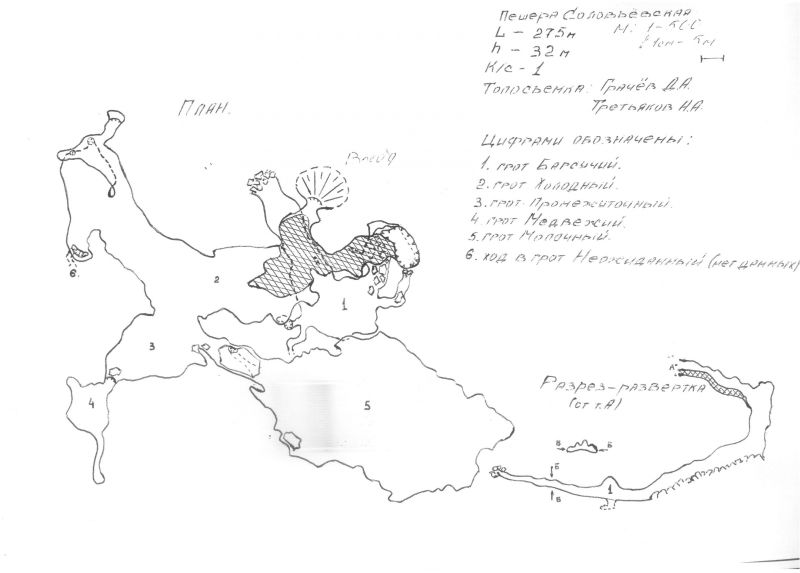 Пещера Соловьёвская
L – 275м
h – 32м
К/с – 1
Топосъемка: Грачёв Д.А.
Третьяков И.А.
План.
Вход
Цифрами обозначены:
1. грот Барсучий.
2. грот Холодный.
3. грот Промежуточный.
4 грот Медвежий.
5. грот Молочный.
6. ход в грот Неожиданный (нет данных)
6.
2
1
3
4
5
Разрез-развертка
(от т.А)
А
Б
Б
Б
Б
1